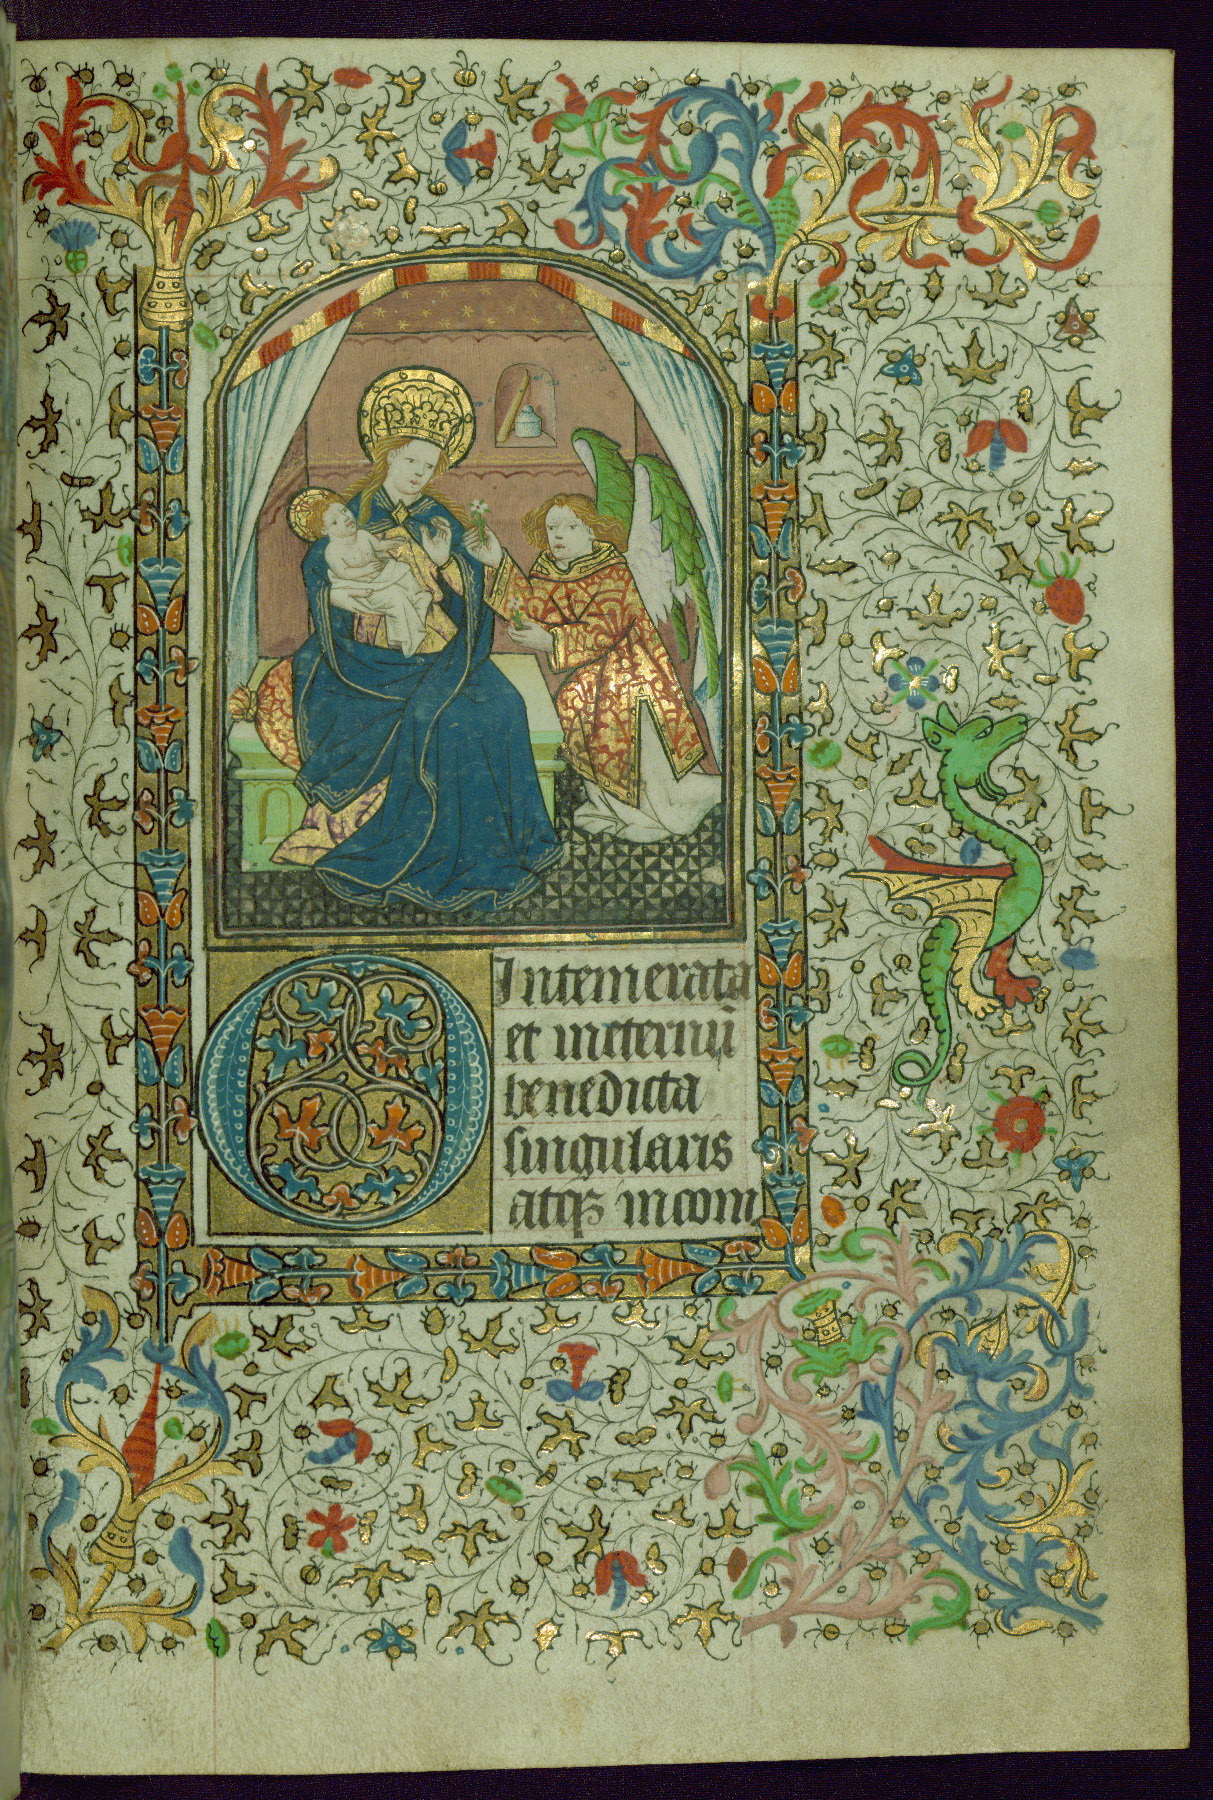 O Intemerata
et in eternū
benedicta
singularis
atqꝫ incom